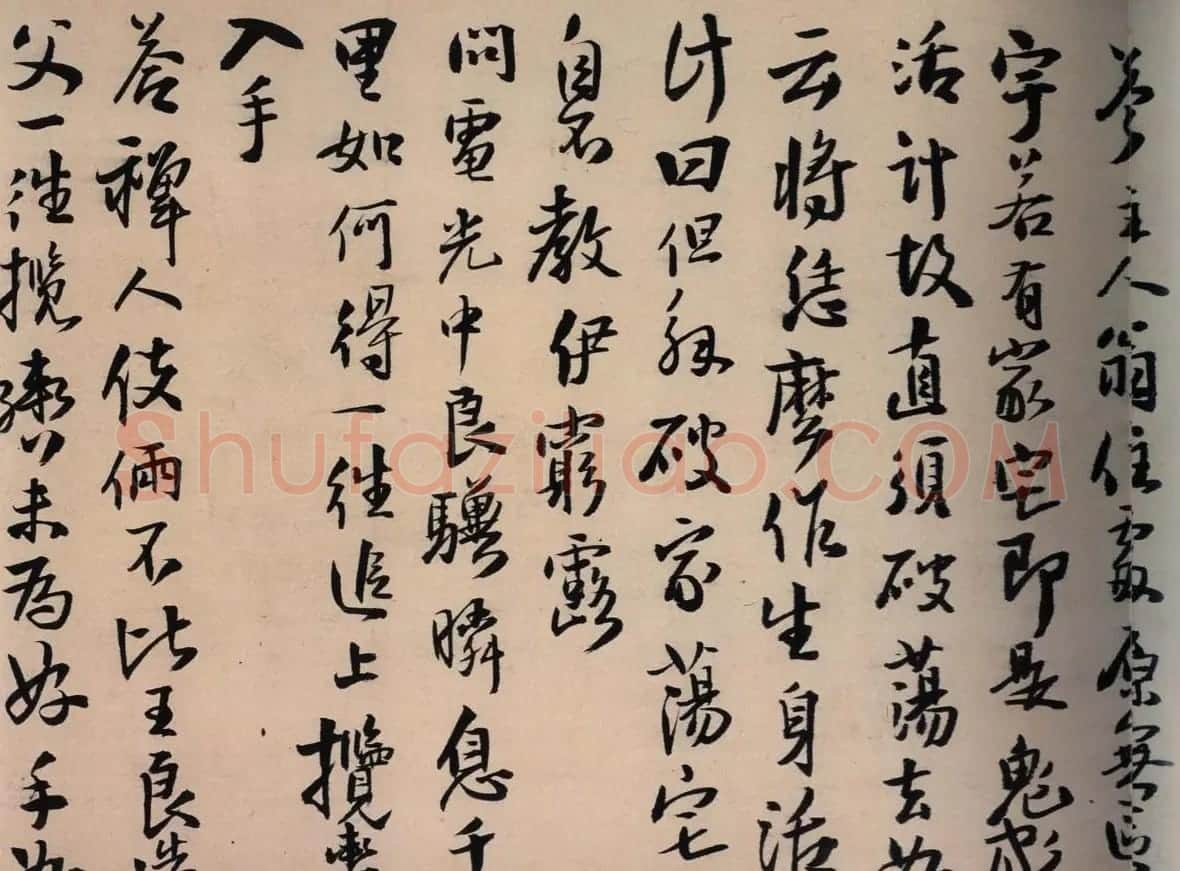 答主人翁住處原無區
宇若有家宅即是鬼
活計故直須破蕩去如
云將恁麼作生身活
計曰但解破家蕩宅
自不教伊窮露
問電光中良驥瞬息千
里如何得一往追上攬轡
入手
答禪人伎倆不比王良造
父一往攬轡未為好手如
Shufaziliao.COM